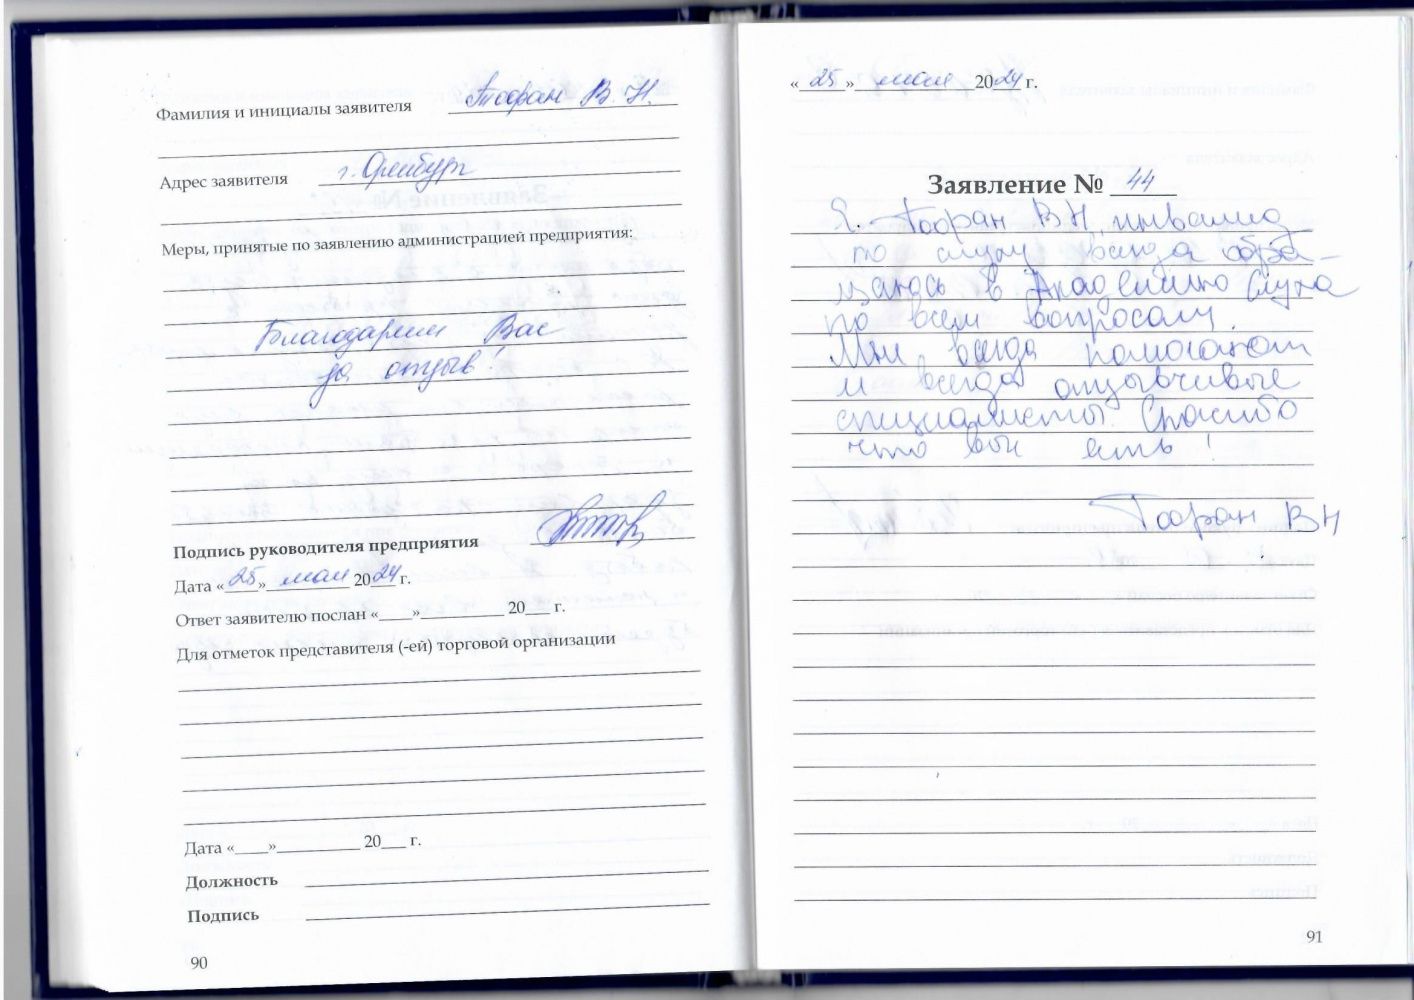 Фамилия и инициалы заявителя Тафран В. Н.
Адрес заявителя г. Оренбург
Меры, принятые по заявлению администрацией предприятия:
Благодарим Вас
за отзыв!
Подпись руководителя предприятия
Дата «25» мая 2024 г.
Ответ заявителю послан «___»__________ 20___ г.
Для отметок представителя (-ей) торговой организации
Дата «___»__________ 20___ г.
Должность
Подпись
90
«25» мая 2024 г.
Заявление № 44
Я. В Н, инвалид
по слуху всегда обра-
щаюсь в Академию Слуха
по всем вопросам.
Мне всегда помогают
и всегда отзывчивые
специалисты. Спасибо
что вы есть!
В Н
91